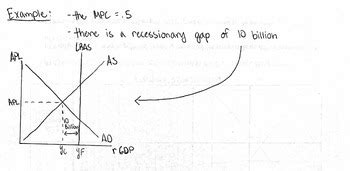 Example: - the MPC = .5
- there is a recessionary gap of 10 billion
LRAS
APL
AS
APL₁
10
billion
AD
Y₁ YF rGDP